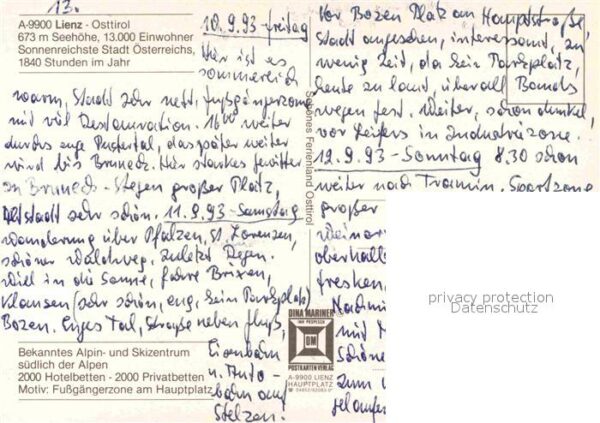 13.
A-9900 Lienz - Osttirol
673 m Seehöhe, 13.000 Einwohner
Sonnenreichste Stadt Österreichs,
1840 Stunden im Jahr
10.9.93 - freitag
Hier ist es
sommerlich
warm, Stadt sehr nett, fußgängerzone
mit viel Restauration. 16⁰⁰ weiter
durchs enge Pustertal, das später weiter
wird bis Bruneck. Hier starkes Gewitter
in Bruneck - Stegen großer Platz,
Altstadt sehr schön. 11.9.93 - Samstag
Wanderung über Pfalzen, St. Lorenzen,
schöner Waldweg. Zuletzt Regen.
Will in die Sonne, fahre Brixen,
Klausen (sehr schön, eng, kein Parkplatz)
Bozen. Enges Tal, Straße neben fluß,
Eisenbahn
u. Auto-
bahn auf
Stelzen.
Bekanntes Alpin- und Skizentrum
südlich der Alpen
2000 Hotelbetten - 2000 Privatbetten
Motiv: Fußgängerzone am Hauptplatz
Schönes Ferienland Osttirol
DINA MARINER
DM
POSTKARTENVERLAG
A-9900 LIENZ
HAUPTPLATZ
Vor Bozen Platz an Hauptstraße,
Stadt angesehen, interessant, zu
wenig Zeit, da kein Parkplatz,
heute zu laut, überall Bands
wegen fest. Weiter, schon dunkel,
vor Leifers in Industriezone.
12.9.93 - Sonntag 8.30 schon
weiter nach Tramin. Sportzone
großer
oberhalb
fresken
mit
schöne
zum
privacy protection
Datenschutz